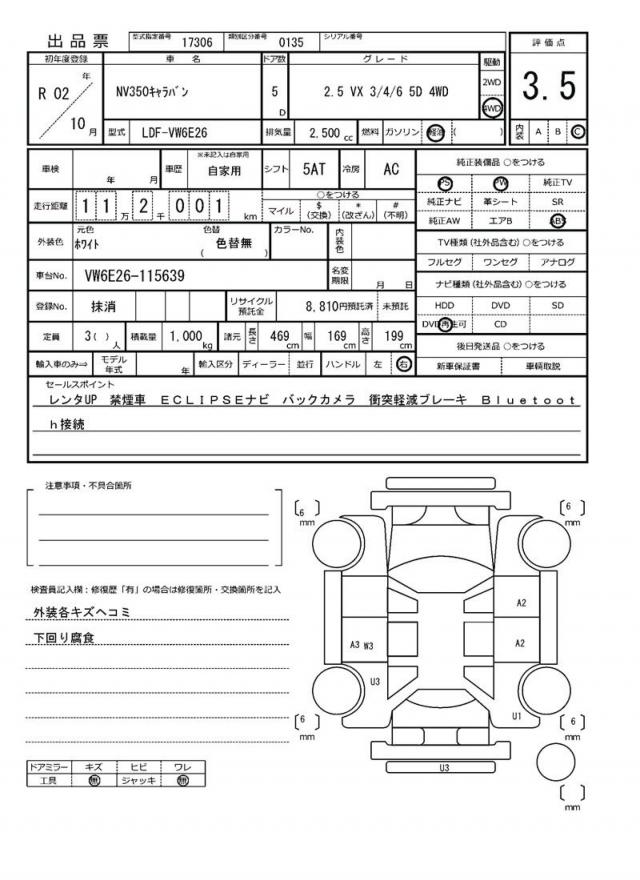 出品票 型式指定番号 17306 類別区分番号 0135 シリアル番号
初年度登録 車名 ドア数 グレード 駆動 評価点
R 02 年 10 月 NV350キャラバン 5 D 2.5 VX 3/4/6 5D 4WD 2WD 4WD 3.5
型式 LDF-VW6E26 排気量 2,500 cc 燃料 ガソリン 軽油 ( ) 内装 A B C
車検 年 月 車歴 ※未記入は自家用 自家用 シフト 5AT 冷房 AC 純正装備品 ○をつける
PS PW 純正TV
走行距離 1 1 万 2 千 0 0 1 km ○をつける 純正ナビ 革シート SR
マイル $ (交換) * (改ざん) # (不明) 純正AW エアB ABS
外装色 元色 ホワイト 色替 ( 色替無 ) カラーNo. 内装色 TV種類 (社外品含む) ○をつける
フルセグ ワンセグ アナログ
車台No. VW6E26-115639 名変期限 月 日 ナビ種類 (社外品含む) ○をつける
登録No. 抹消 リサイクル預託金 8,810円預託済 未預託 HDD DVD SD
DVD再生可 CD
定員 3( ) 人 積載量 1,000 kg 諸元 長さ 469 cm 幅 169 cm 高さ 199 cm 後日発送品 ○をつける
輸入車のみ⇒ モデル年式 年 輸入区分 ディーラー 並行 ハンドル 左 右 新車保証書 車輌取説
セールスポイント
レンタUP 禁煙車 ECLIPSEナビ バックカメラ 衝突軽減ブレーキ Bluetoot
h接続
注意事項・不具合箇所
検査員記入欄：修復歴「有」の場合は修復箇所・交換箇所を記入
外装各キズヘコミ
下回り腐食
ドアミラー キズ ヒビ ワレ
工具 無 ジャッキ 無
6 mm
6 mm
A2
A3 W3 A2
U3
U1
6 mm
6 mm
U3
mm